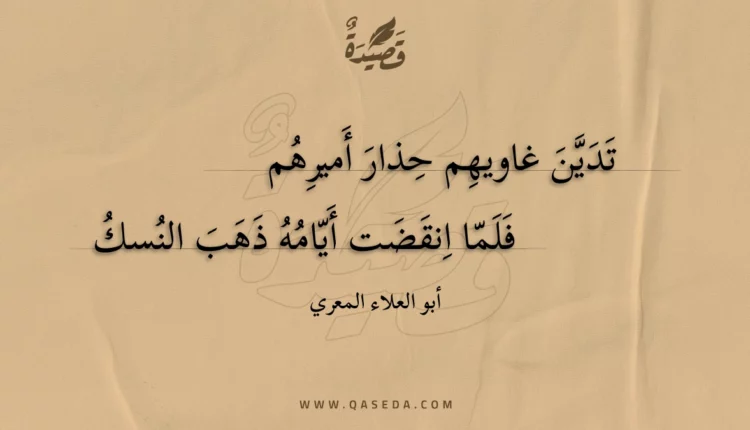 قَصِيدَةٌ
تَدَيَّنَ غاويهِم حِذارَ أَميرِهُم
فَلَمّا اِنقَضَت أَيّامُهُ ذَهَبَ النُسكُ
أبو العلاء المعري
WWW.QASEDA.COM